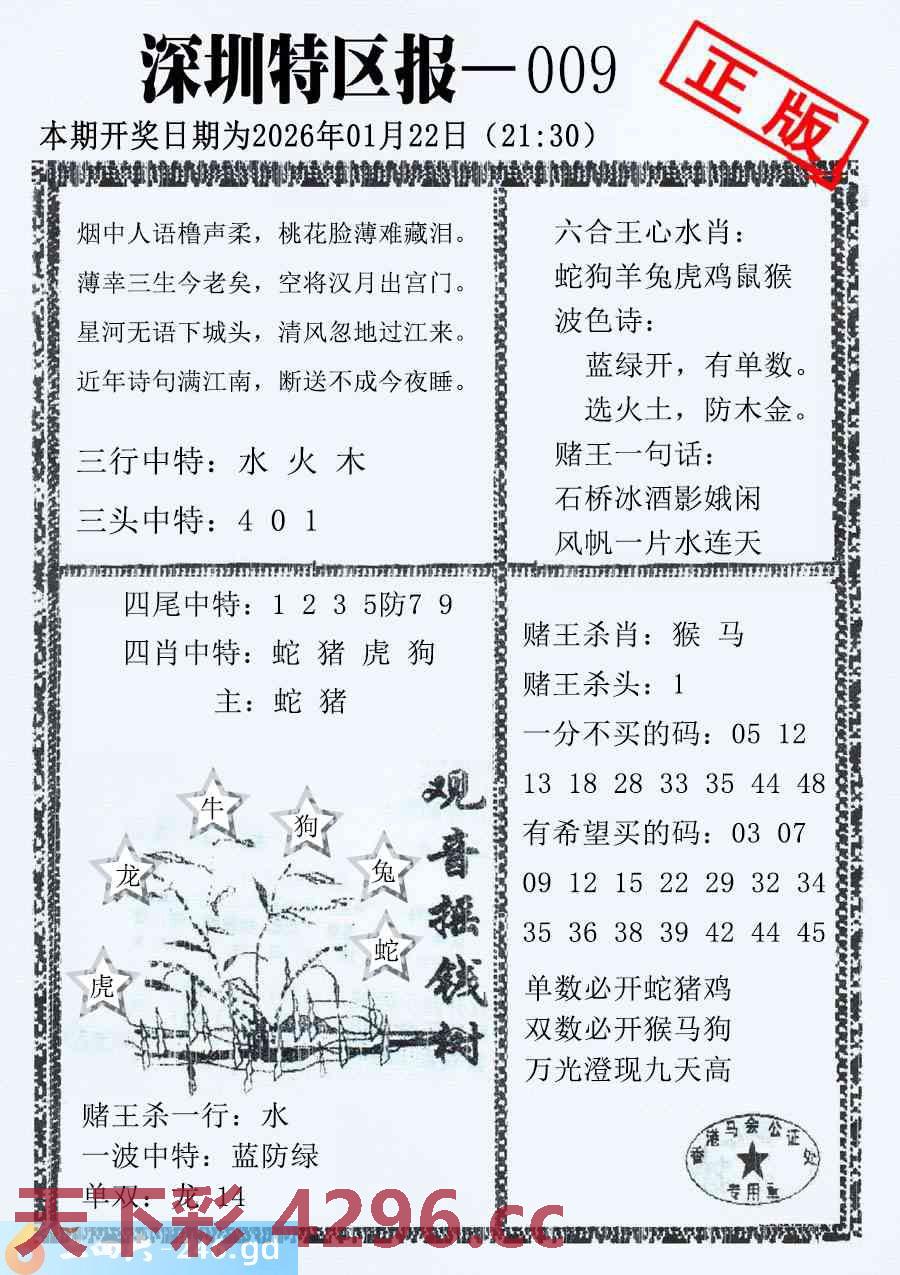 深圳特区报—009
正版
本期开奖日期为2026年01月22日（21:30）
烟中人语橹声柔，桃花脸薄难藏泪。
薄幸三生今老矣，空将汉月出宫门。
星河无语下城头，清风忽地过江来。
近年诗句满江南，断送不成今夜睡。
三行中特：水 火 木
三头中特：4 0 1
六合王心水肖：
蛇狗羊兔虎鸡鼠猴
波色诗：
蓝绿开，有单数。
选火土，防木金。
赌王一句话：
石桥冰酒影娥闲
风帆一片水连天
四尾中特：1 2 3 5防7 9
四肖中特：蛇 猪 虎 狗
主：蛇 猪
牛
狗
龙
兔
蛇
虎
观音摇钱树
赌王杀一行：水
一波中特：蓝防绿
单双：龙 14
赌王杀肖：猴 马
赌王杀头：1
一分不买的码：05 12
13 18 28 33 35 44 48
有希望买的码：03 07
09 12 15 22 29 32 34
35 36 38 39 42 44 45
单数必开蛇猪鸡
双数必开猴马狗
万光澄现九天高
香港马会公证处
专用章
天下彩 4296.cc